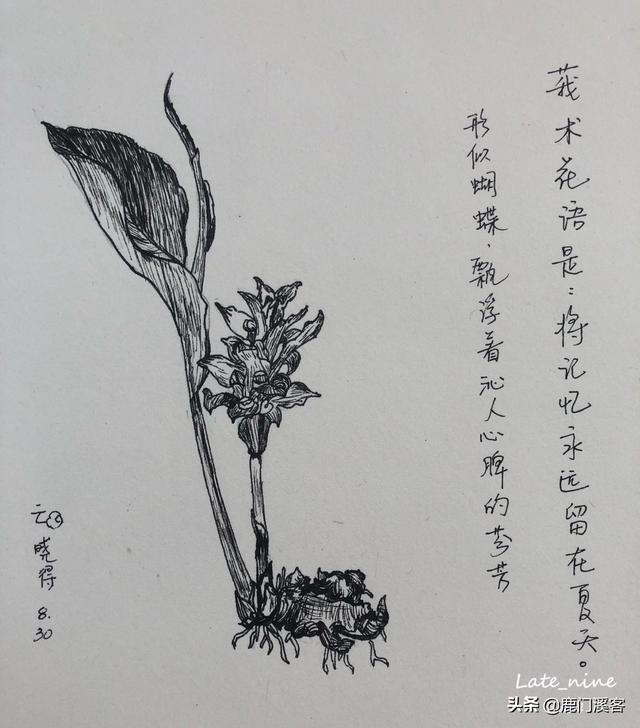 莪术花语是：将记忆永远留在夏天。
形似蝴蝶，飘浮着沁人心脾的芬芳
云
晓得
8.
30
Late_nine
头条 @鹿门溪客